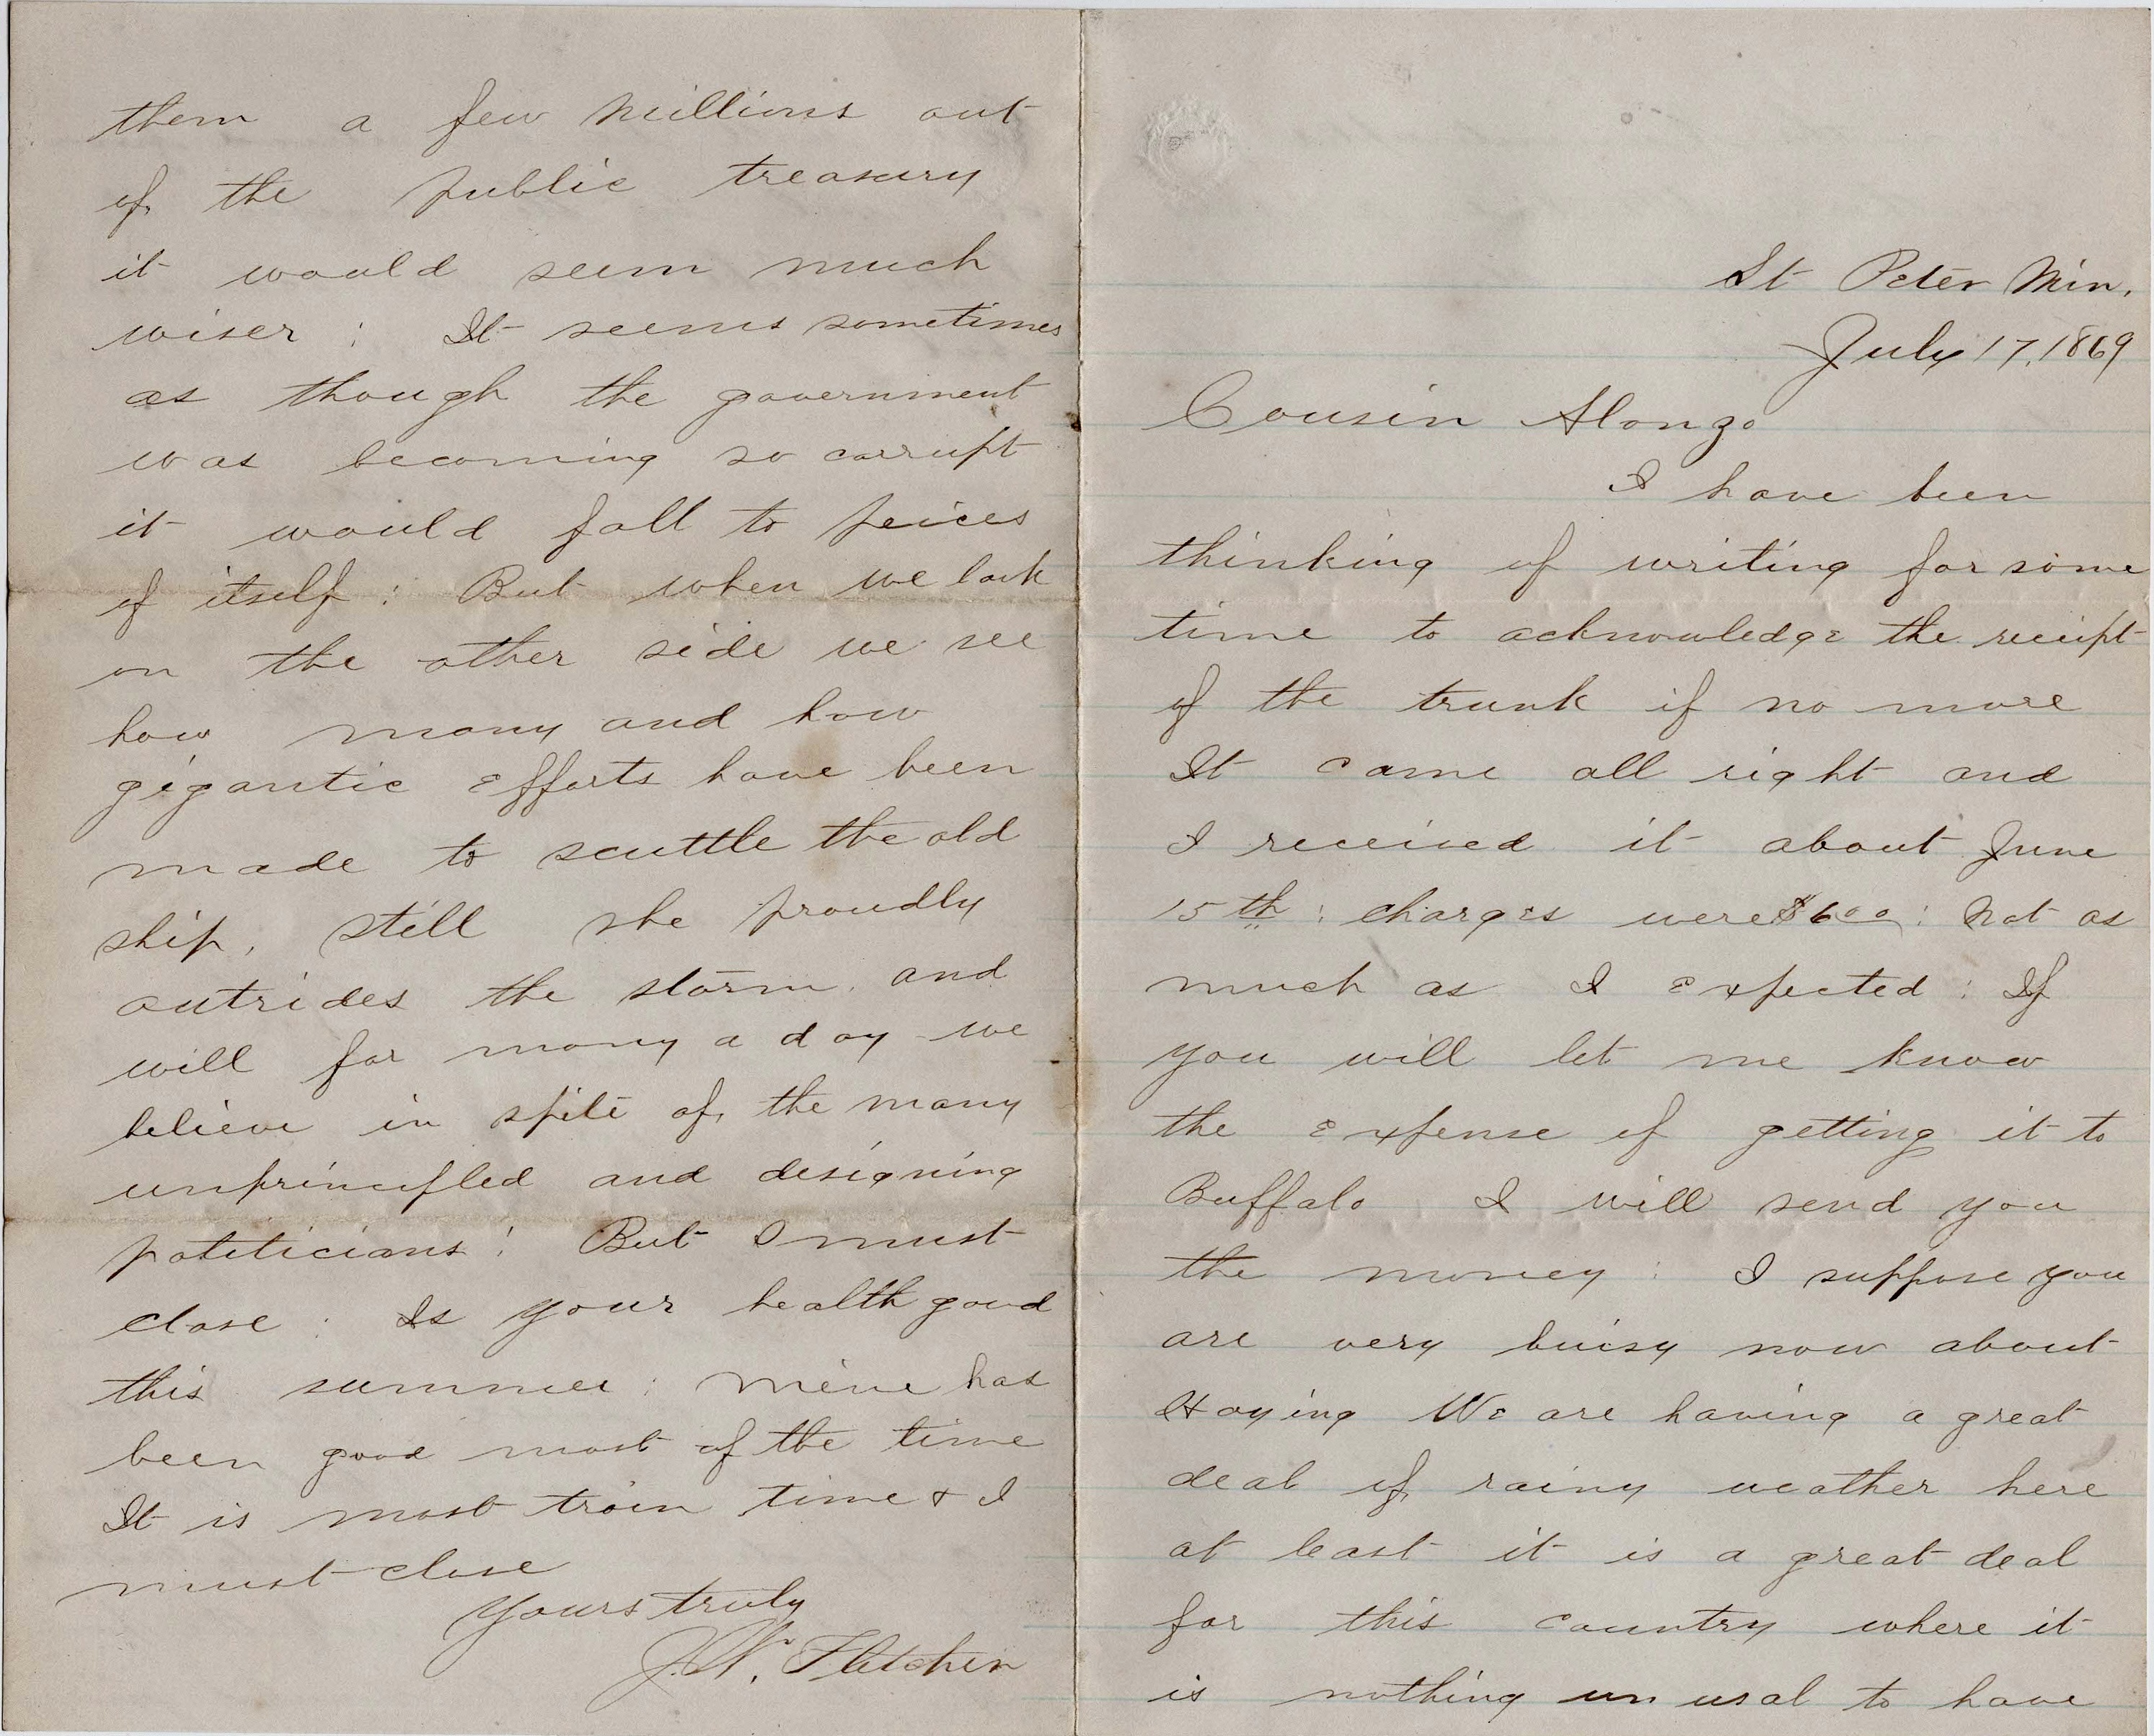 St Peter Min.
July 17, 1869
Cousin Alonzo
I have been
thinking of writing for some
time to acknowledge the reciept
of the trunk if no more
It came all right and
I received it about June
15th : charges were $600 : Not as
much as I expected : If
you will let me know
the expense of getting it to
Buffalo I will send you
the money : I suppose you
are very buisy now about
Haying We are having a great
deal of rainy weather here
at least it is a great deal
for this country where it
is nothing un usal to have
them a few millions out
of the public treasury
it would seem much
wiser : It seems sometimes
as though the government
was becoming so corrupt
it would fall to peices
of itself : But when we look
on the other side we see
how many and how
gigantic efforts have been
made to scuttle the old
ship, still she proudly
outrides the storm, and
will for many a day we
believe in spite of the many
unprincipled and designing
politicians : But I must
close : Is your health good
this summer : mine has
been good most of the time
It is most train time & I
must close
Yours truly
J. W. Fletcher